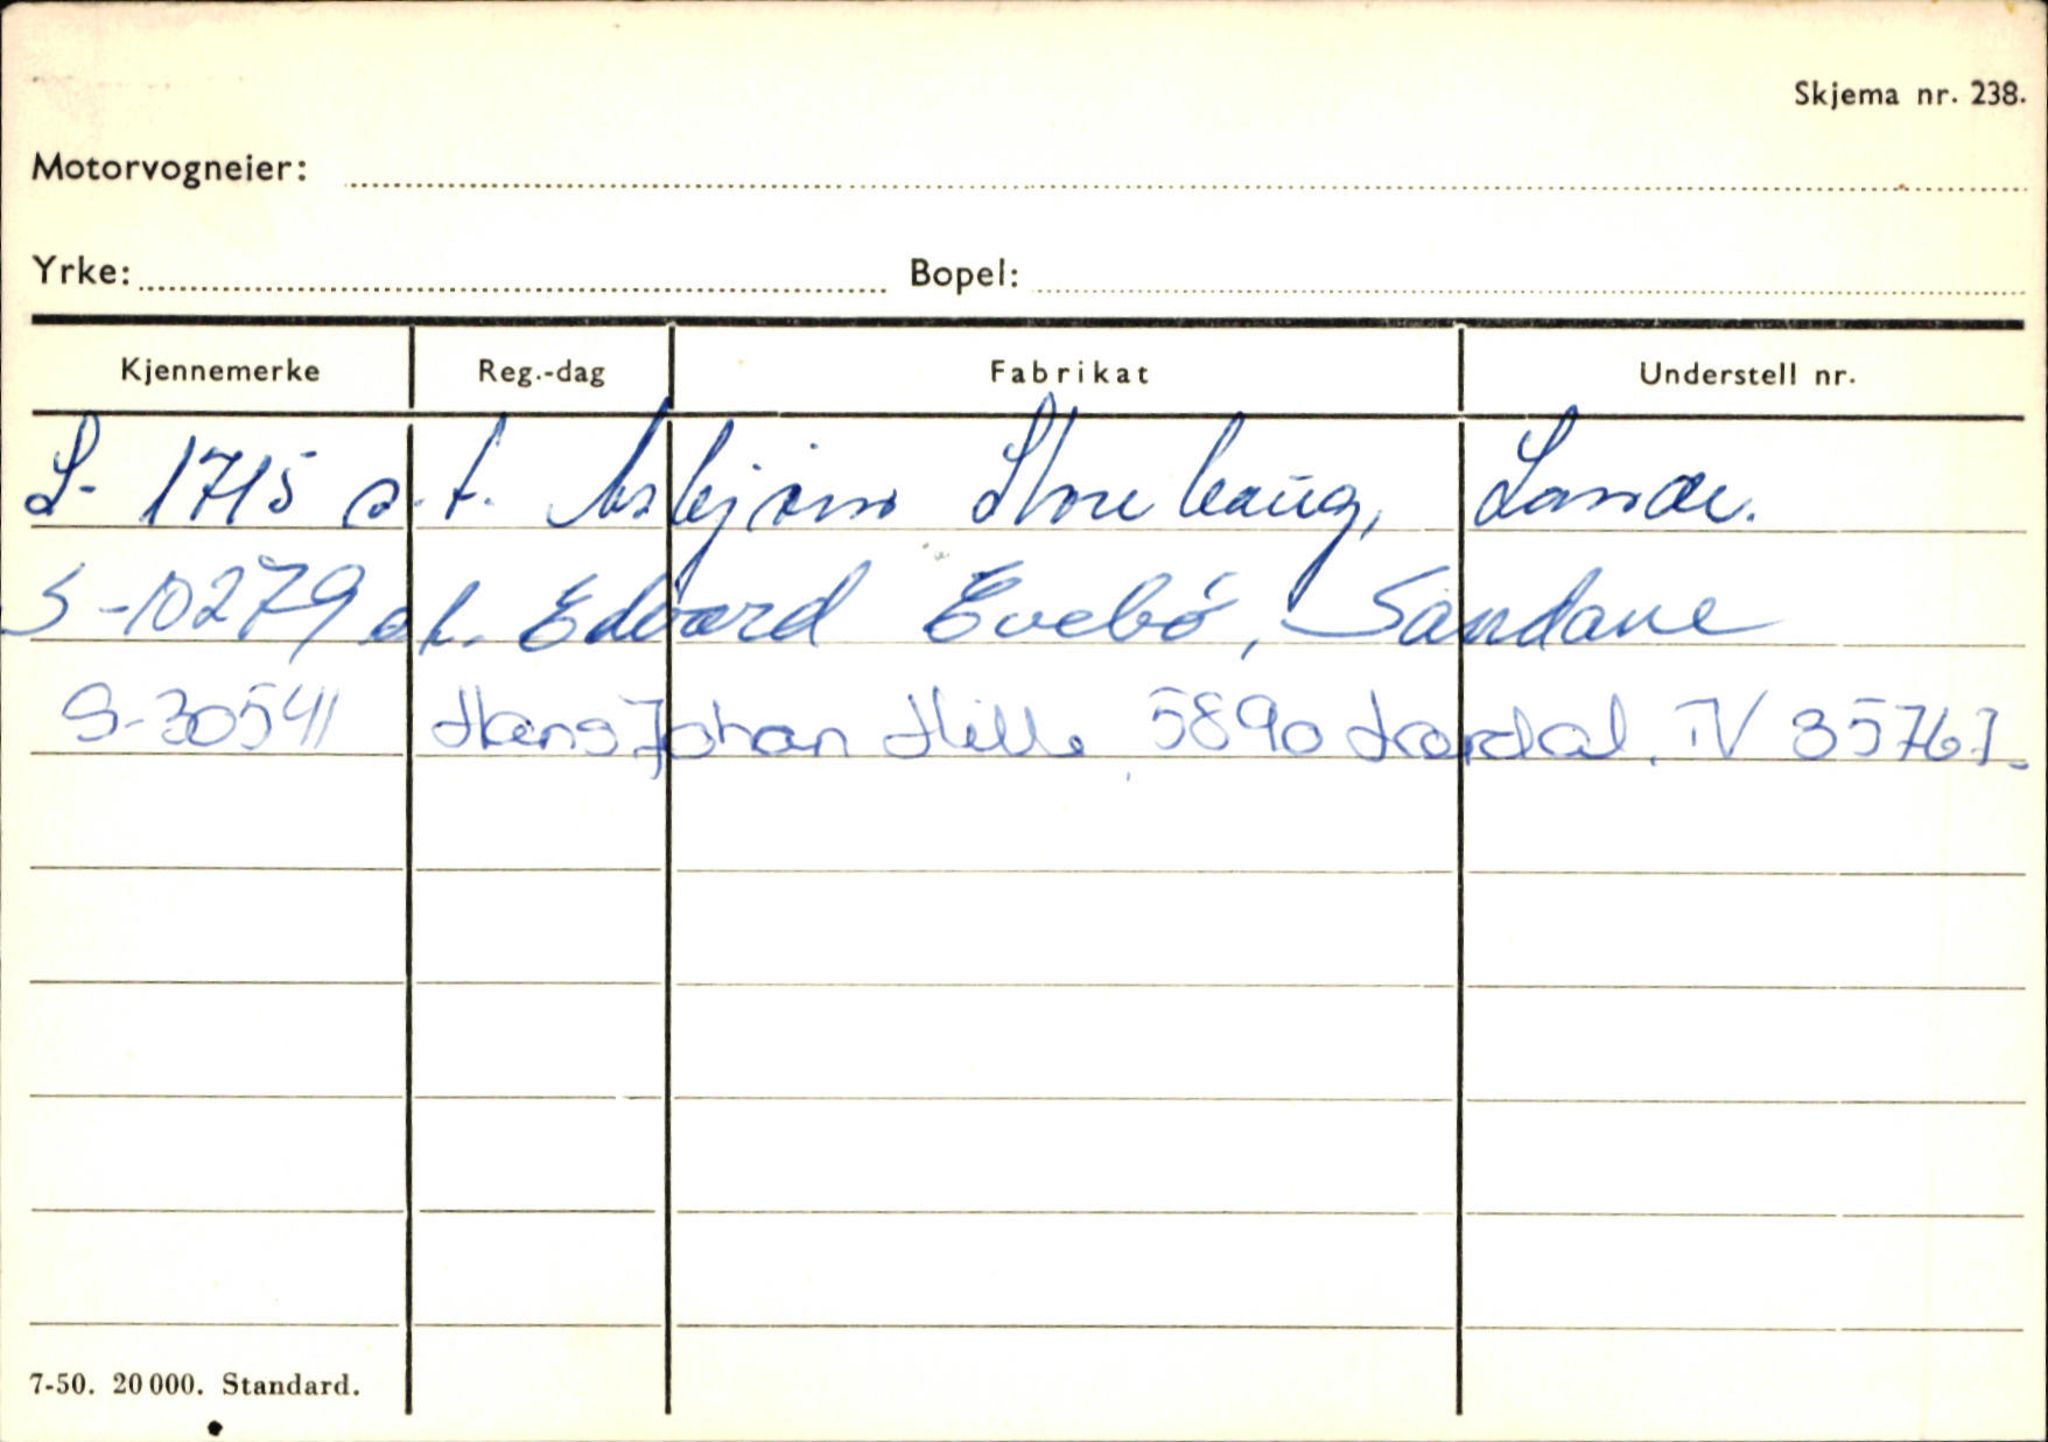 Skjema nr. 238.
Motorvogneier:
Yrke: Bopel:
Kjennemerke Reg.-dag Fabrikat Understell nr.
S- 1715 s.t. Asbjörn Storehaug,
S-10279 st. Edvard Evebö, Sandane
S-30541 Hans Johan Hille 5890 Lærdal. TV 35767.
7-50. 20 000. Standard.